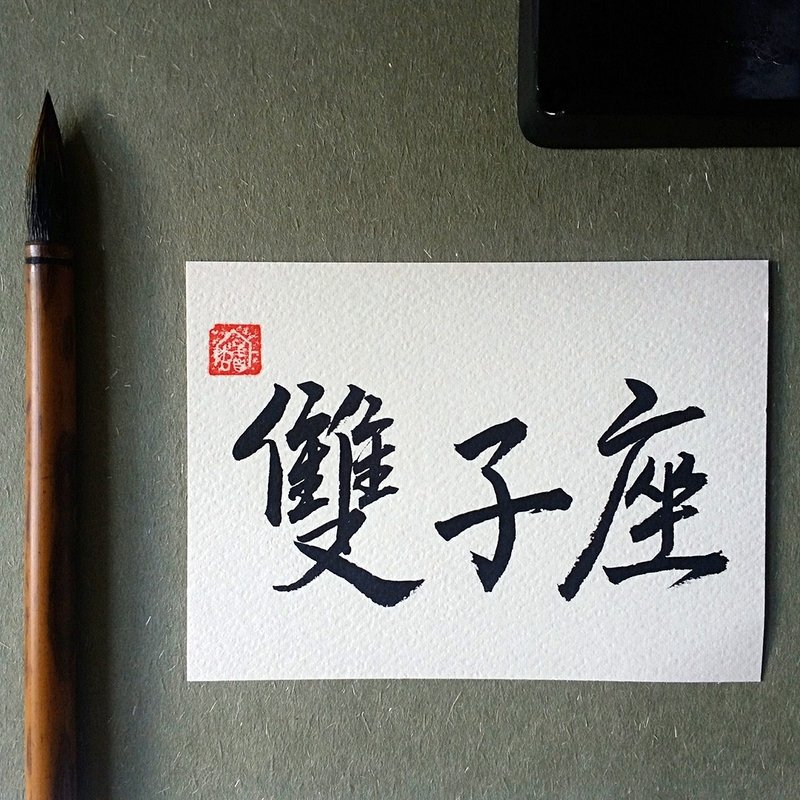 雙子座